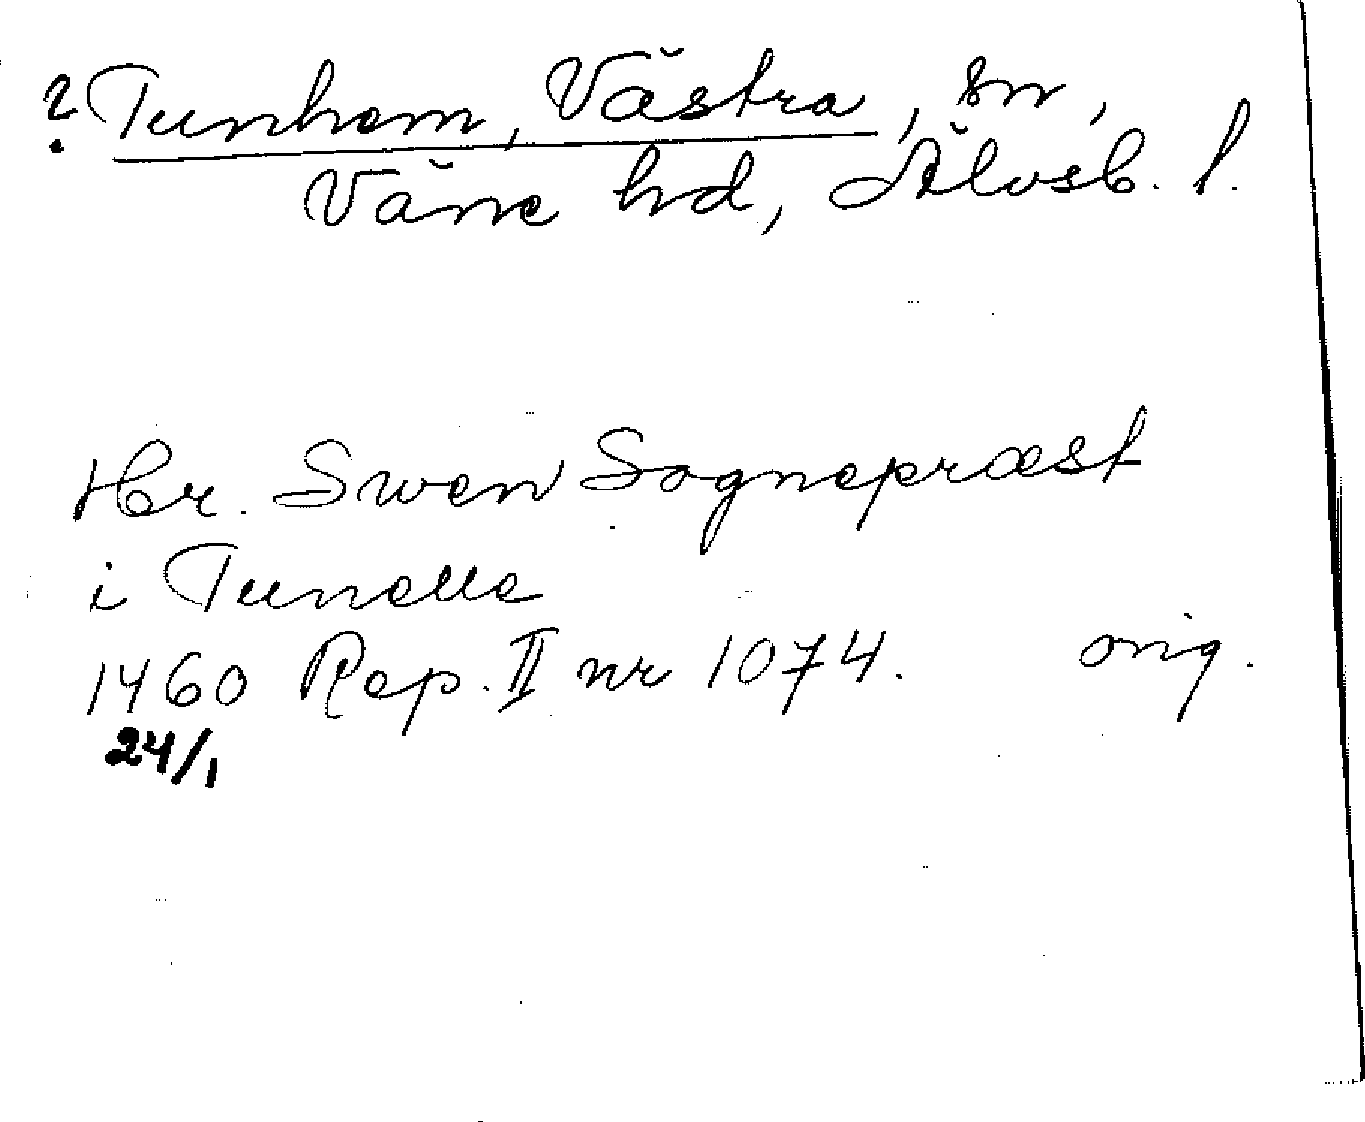 ? Tunhem, Västra, sn,
Väne hd, Älvsb. l.
Hr. Swen Sognepræst
i Tunelle
1460 Rep. II nr 1074. orig.
24/1